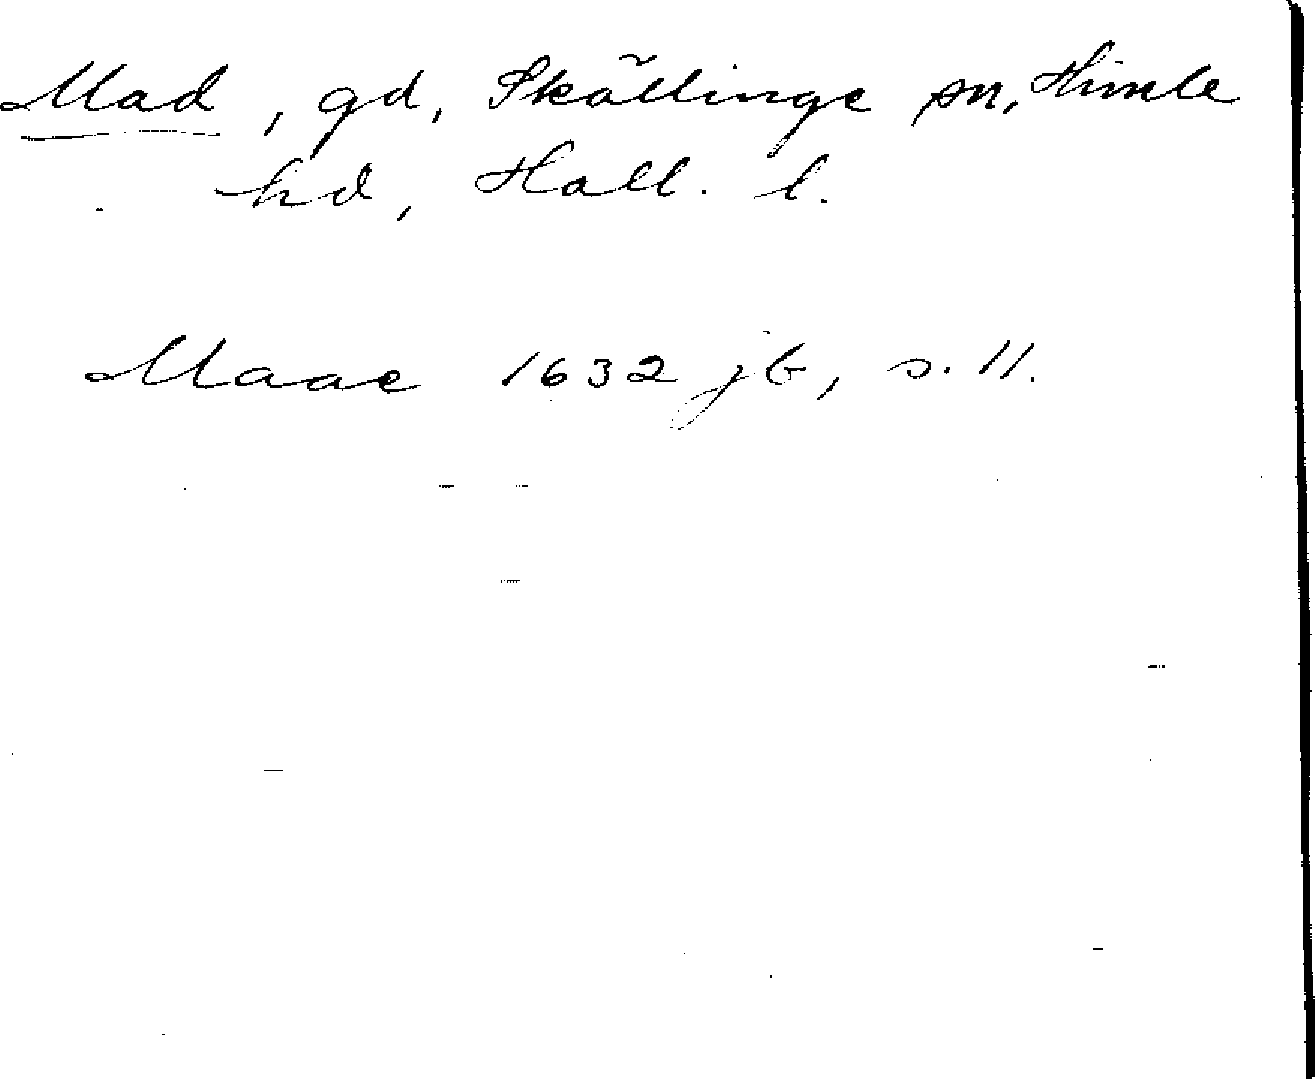 Mad, gd, Skällinge sn, Himle
hd, Hall. l.
Maae 1632 jb, s. 11.